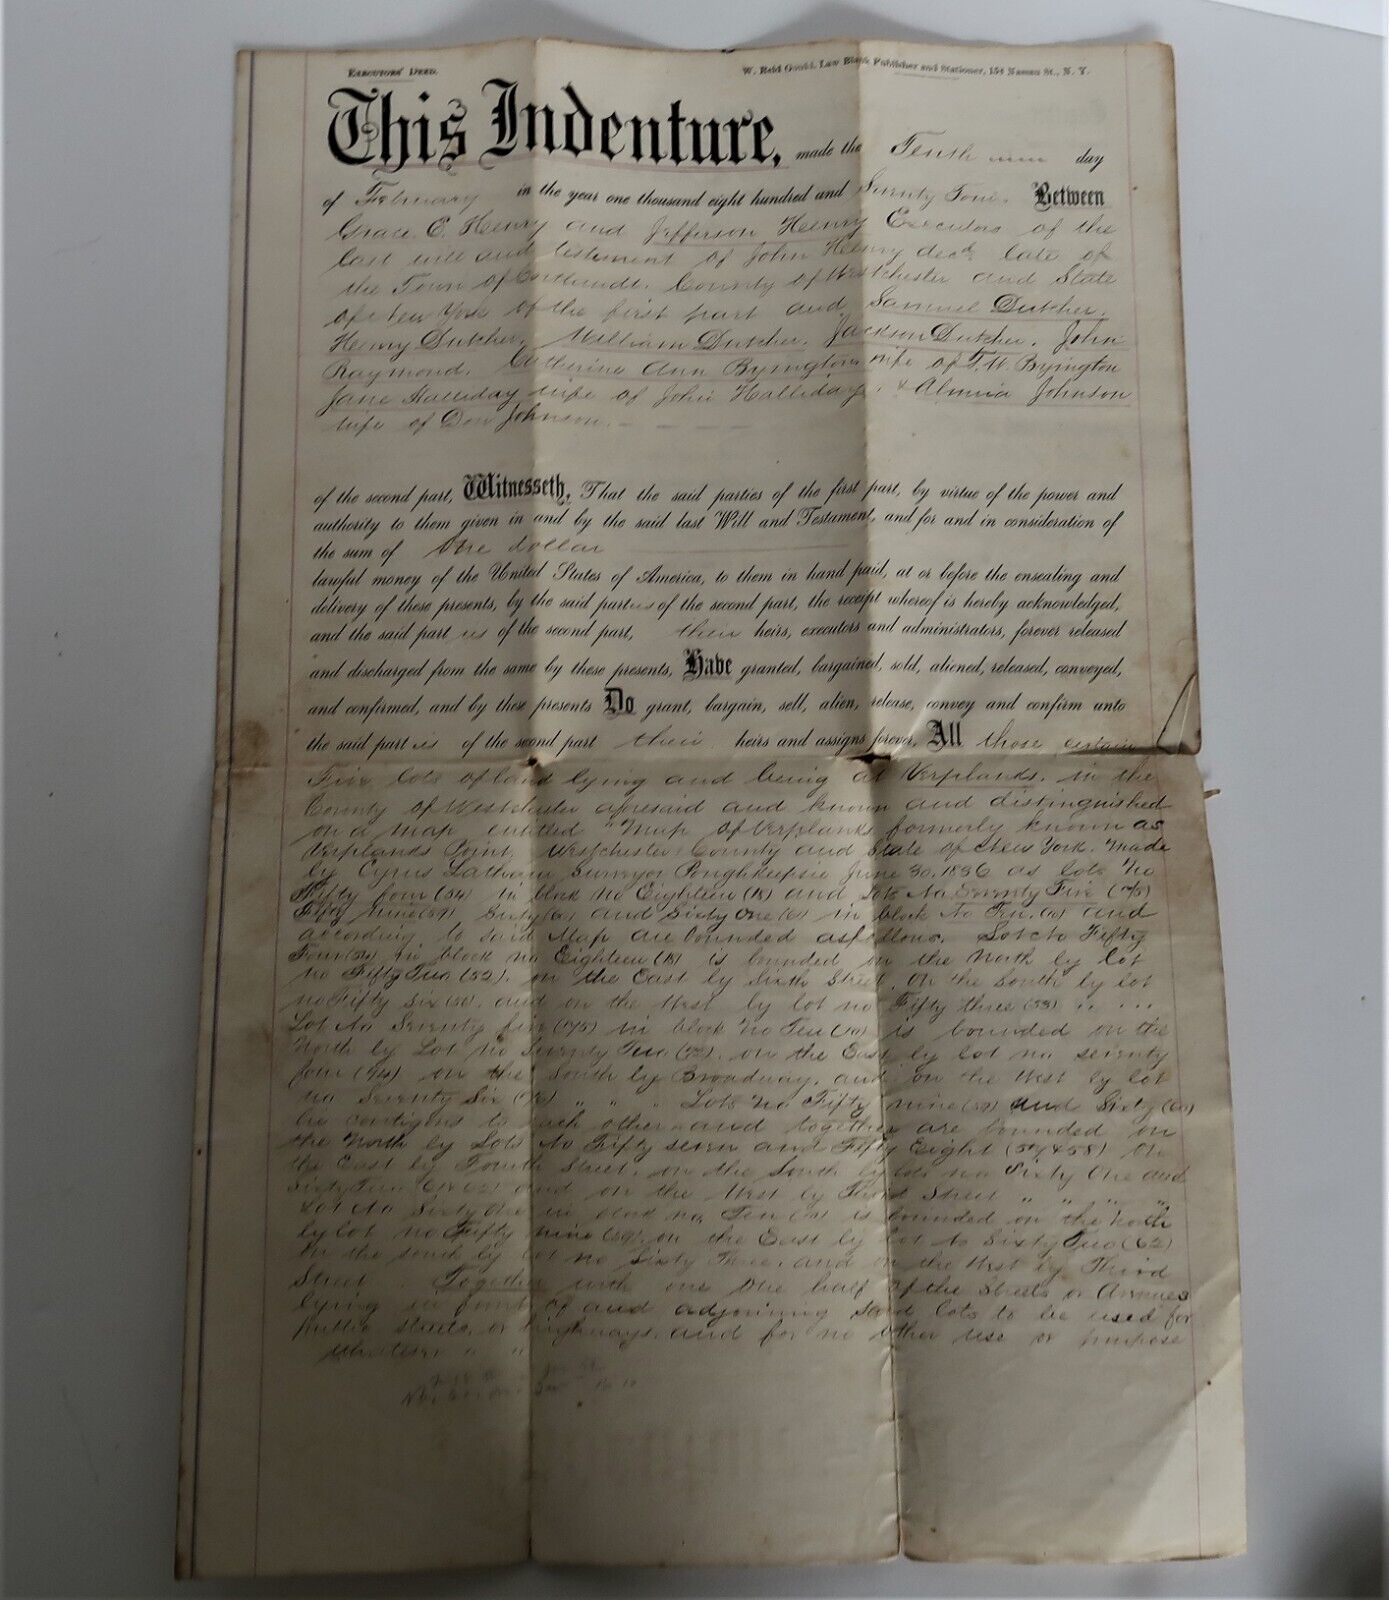 EXECUTORS' DEED.
W. Reid Gould, Law Blank Publisher and Stationer, 154 Nassau St., N. Y.
This Indenture, made the Tenth day
of February in the year one thousand eight hundred and Seventy Four. Between
Grace E. Henry and Jefferson Henry Executors of the
last will and testament of John Henry decd late of
the Town of Cortlandt. County of Westchester and State
of New York of the first part and Samuel Dutcher.
Henry Dutcher. William Dutcher. Jackson Dutcher. John
Raymond. Catherine Ann Byington wife of T. W. Byington
Jane Halliday wife of John Halliday. & Almira Johnson
wife of Don Johnson.
of the second part, Witnesseth, That the said parties of the first part, by virtue of the power and
authority to them given in and by the said last Will and Testament, and for and in consideration of
the sum of One dollar
lawful money of the United States of America, to them in hand paid, at or before the ensealing and
delivery of these presents, by the said parties of the second part, the receipt whereof is hereby acknowledged,
and the said part ies of the second part, their heirs, executors and administrators, forever released
and discharged from the same by these presents, Have granted, bargained, sold, aliened, released, conveyed,
and confirmed, and by these presents Do grant, bargain, sell, alien, release, convey and confirm unto
the said part ies of the second part their heirs and assigns forever, All those certain
Five lots of land lying and being at Verplancks. in the
County of Westchester aforesaid and known and distinguished
on a map entitled "Map of Verplancks formerly known as
Verplancks Point, Westchester County and State of New York. Made
by Cyrus Surveyor Poughkeepsie June 30. 1836 as lots No
Fifty four (54) in block no Eighteen (18) and Lots No Seventy Five (75)
Fifty nine (59) Sixty (60) and Sixty One (61) in block No Ten. (10) and
according to said Map are bounded as follows. Lot No Fifty
Four (54) in block no Eighteen (18) is bounded on the North by lot
no Fifty Two (52). on the East by Sixth Street. On the South by lot
no Fifty Six (56). and on the West by lot no Fifty three (53) " "
Lot No Seventy five (75) in block no Ten (10) is bounded on the
North by Lot no Seventy Two (72). on the East by lot no seventy
four (74) on the South by Broadway. and on the West by lot
no Seventy Six (76) " " " Lots No Fifty nine (59) and Sixty (60)
lie contigous to each other and together are bounded on
the North by Lots No Fifty seven and Fifty Eight (57 & 58) on
the East by Fourth Street. on the South by lots no Sixty One and
Sixty Two (61 & 62) and on the West by Third Street " " " "
Lot No Sixty One in block no Ten (10) is bounded on the North
by lot no Fifty nine (59). on the East by lot No Sixty Two (62)
on the South by lot no Sixty Three. and on the West by Third
Street Together with one the half of the Streets or Avenues
lying in front of and adjoining said lots to be used for
public streets, or highways. and for no other use or purpose
whatever " "